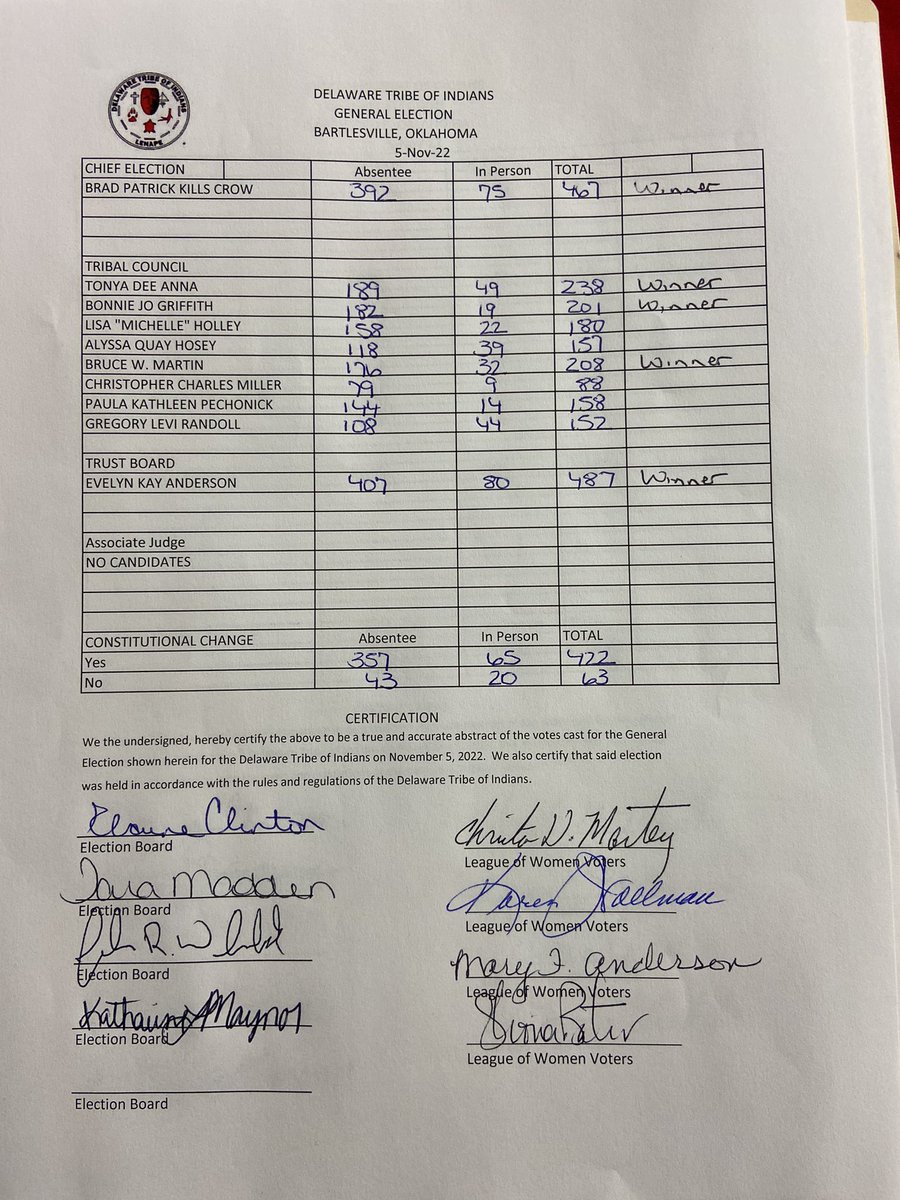 DELAWARE TRIBE OF INDIANS
LENAPE
DELAWARE TRIBE OF INDIANS
GENERAL ELECTION
BARTLESVILLE, OKLAHOMA
5-Nov-22
CHIEF ELECTION Absentee In Person TOTAL
BRAD PATRICK KILLS CROW 392 75 467 Winner
TRIBAL COUNCIL
TONYA DEE ANNA 189 49 238 Winner
BONNIE JO GRIFFITH 182 19 201 Winner
LISA "MICHELLE" HOLLEY 158 22 180
ALYSSA QUAY HOSEY 118 39 157
BRUCE W. MARTIN 176 32 208 Winner
CHRISTOPHER CHARLES MILLER 79 9 88
PAULA KATHLEEN PECHONICK 144 14 158
GREGORY LEVI RANDOLL 108 44 152
TRUST BOARD
EVELYN KAY ANDERSON 407 80 487 Winner
Associate Judge
NO CANDIDATES
CONSTITUTIONAL CHANGE Absentee In Person TOTAL
Yes 357 65 422
No 43 20 63
CERTIFICATION
We the undersigned, hereby certify the above to be a true and accurate abstract of the votes cast for the General
Election shown herein for the Delaware Tribe of Indians on November 5, 2022. We also certify that said election
was held in accordance with the rules and regulations of the Delaware Tribe of Indians.
Elaine Clinton
Election Board
Tara Madden
Election Board
R.
Election Board
Maynor
Election Board
Election Board
League of Women Voters
Karen
League of Women Voters
Mary F. Anderson
League of Women Voters
League of Women Voters